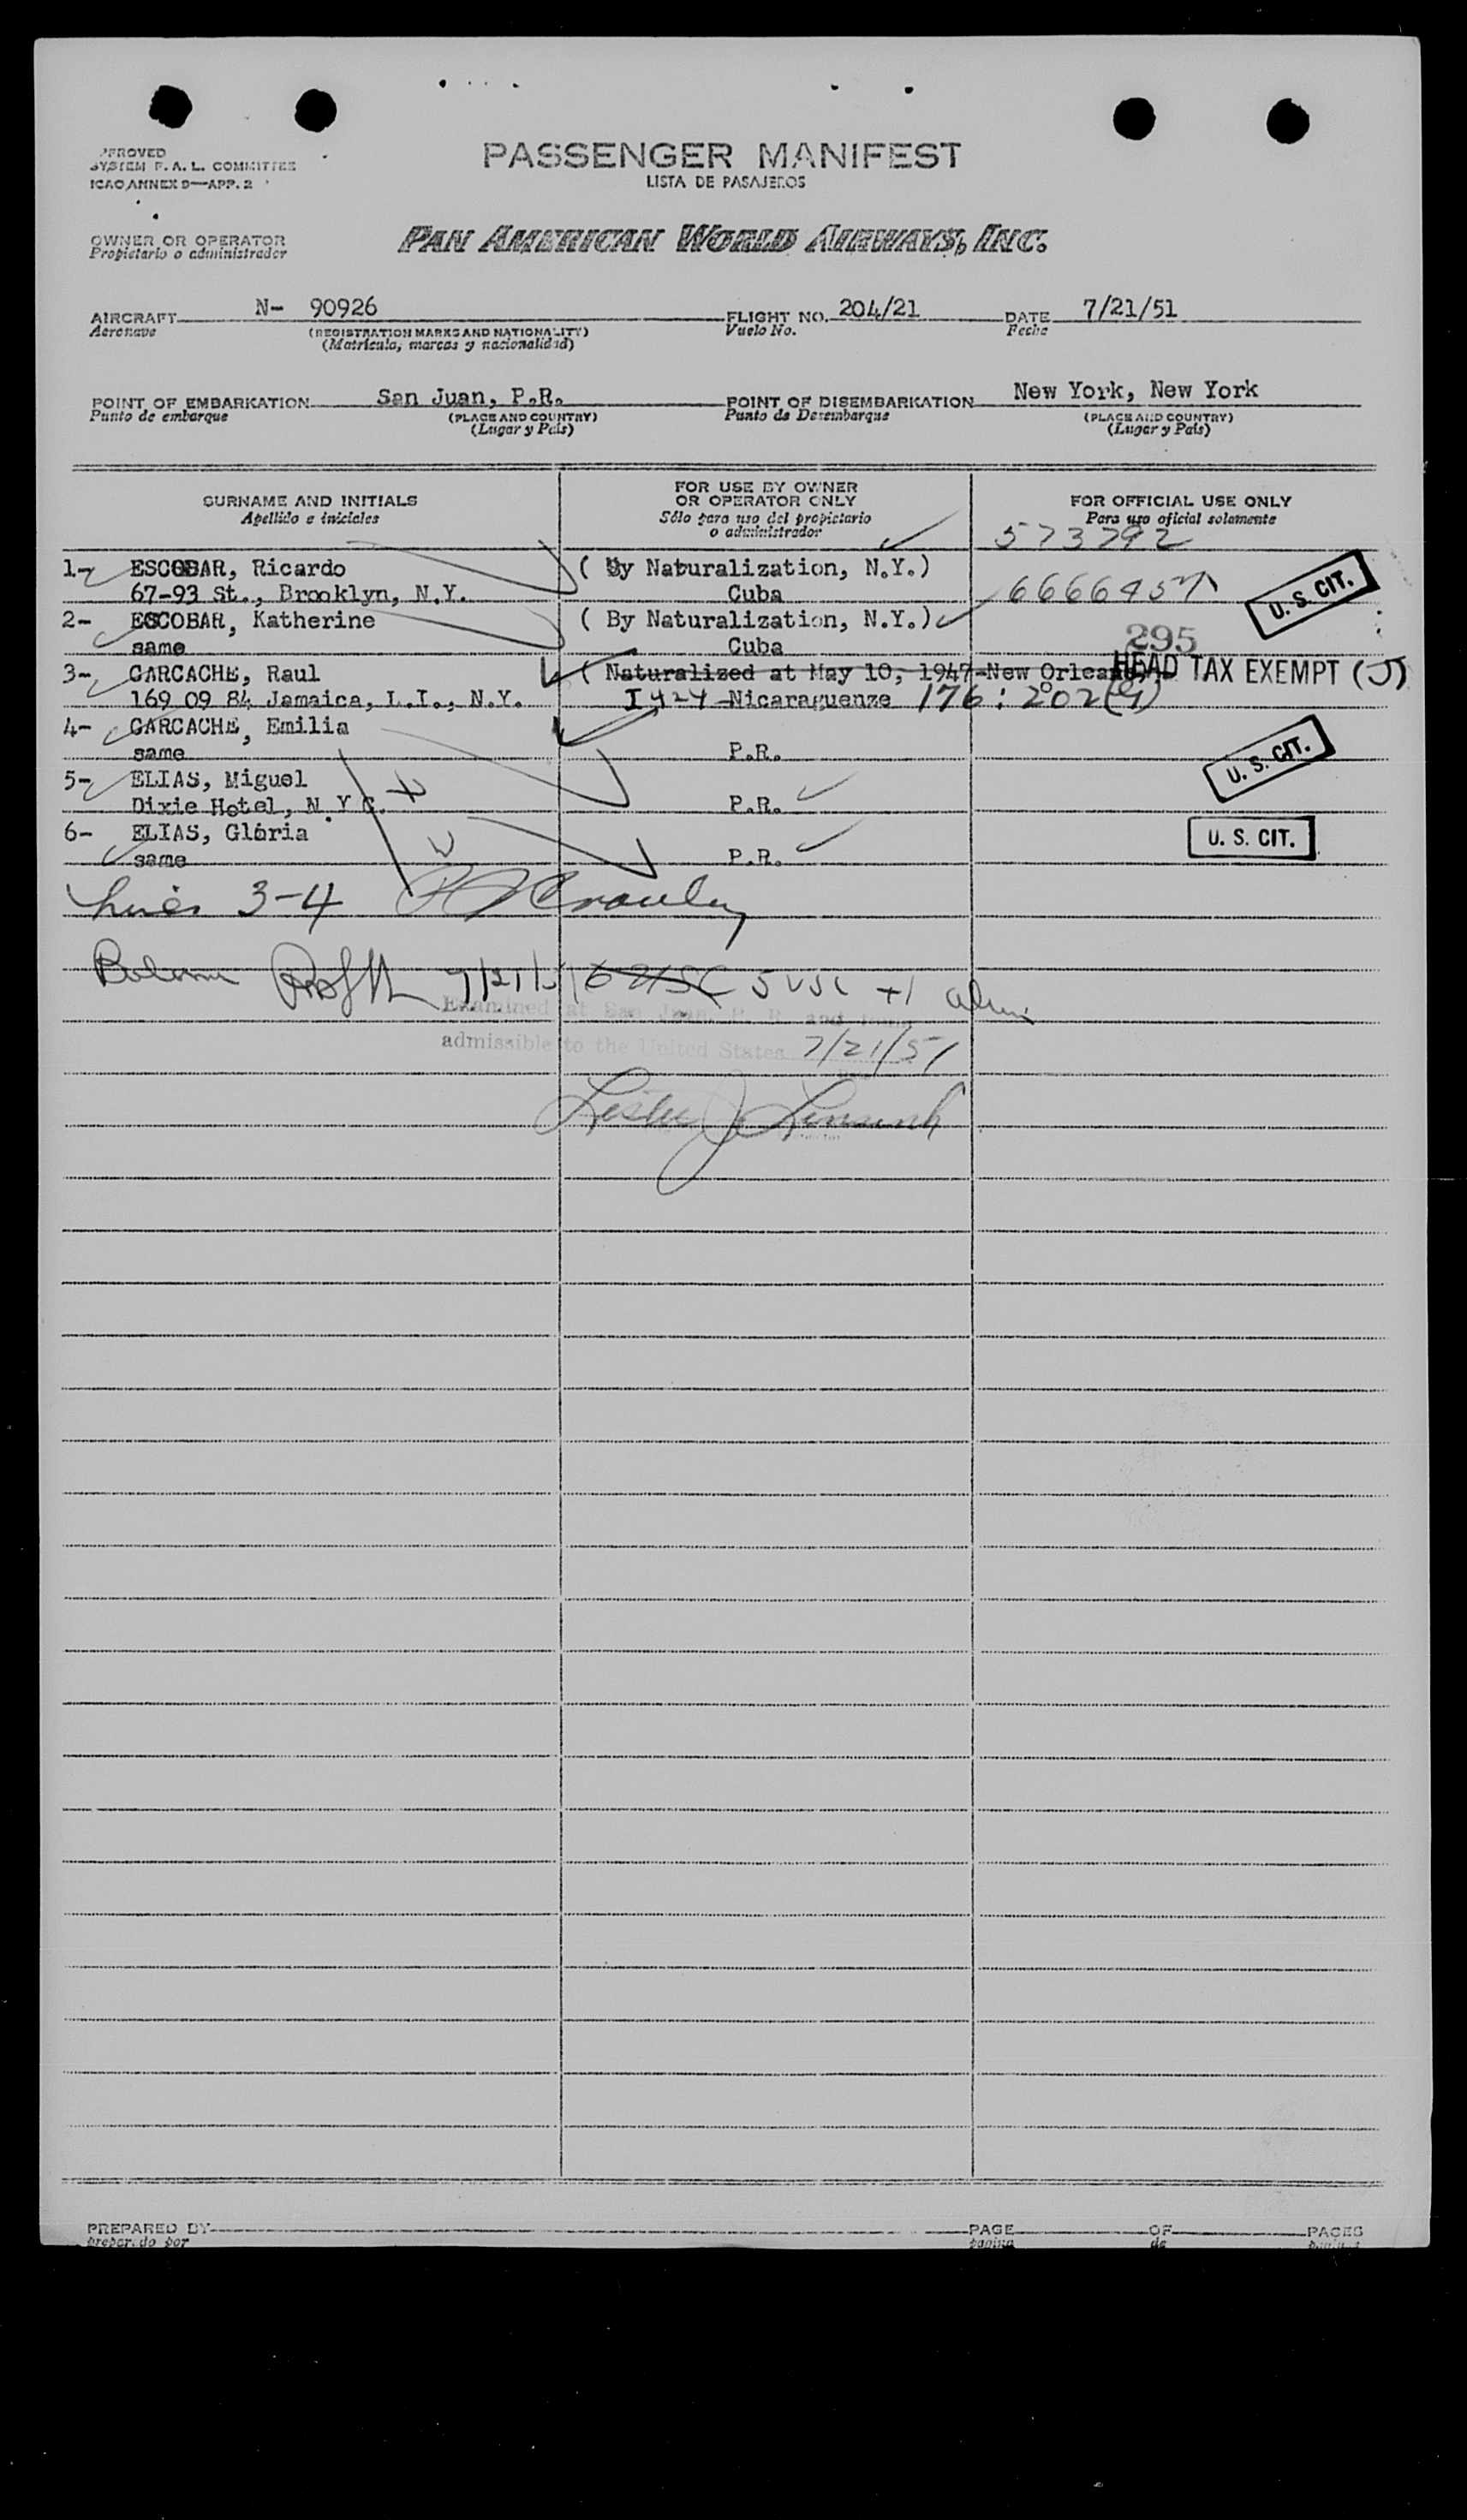 PASSENGER MANIFEST
LISTA DE PASAJEROS
SYSTEM F. A. L. COMMITTEE
ICAO ANNEX 9—APP. 2
OWNER OR OPERATOR
Propietario o administrador
PAN AMERICAN WORLD AIRWAYS, INC.
AIRCRAFT N- 90926 FLIGHT NO. 204/21 DATE 7/21/51
Aeronave (REGISTRATION MARKS AND NATIONALITY) Vuelo No. Fecha
(Matrícula, marcas y nacionalidad)
POINT OF EMBARKATION San Juan, P.R. POINT OF DISEMBARKATION New York, New York
Punto de embarque (PLACE AND COUNTRY) Punto de Desembarque (PLACE AND COUNTRY)
(Lugar y País) (Lugar y País)
SURNAME AND INITIALS
Apellido e iniciales
FOR USE BY OWNER
OR OPERATOR ONLY
Sólo para uso del propietario
o administrador
FOR OFFICIAL USE ONLY
Para uso oficial solamente
573792
1- ESCOBAR, Ricardo ( By Naturalization, N.Y.)
67-93 St., Brooklyn, N.Y. Cuba U. S. CIT.
2- ESCOBAR, Katherine ( By Naturalization, N.Y.) 295
same Cuba
3- GARCACHE, Raul ( Naturalized at May 10, 1947-New Orleans HEAD TAX EXEMPT (J)
169 09 84 Jamaica, L.I., N.Y. Nicaraguenze 176:202
4- GARCACHE, Emilia
same P.R. U. S. CIT.
5- ELIAS, Miguel
Dixie Hotel, N.Y.C. P.R.
6- ELIAS, Gloria U. S. CIT.
same P.R.
Lines 3-4
7/21/51 6 USC 5 USC +1 alien
Examined at San Juan, P. R. and found
admissible to the United States 7/21/51
Leslie J
PREPARED BY PAGE OF PAGES
prepar. do por página de